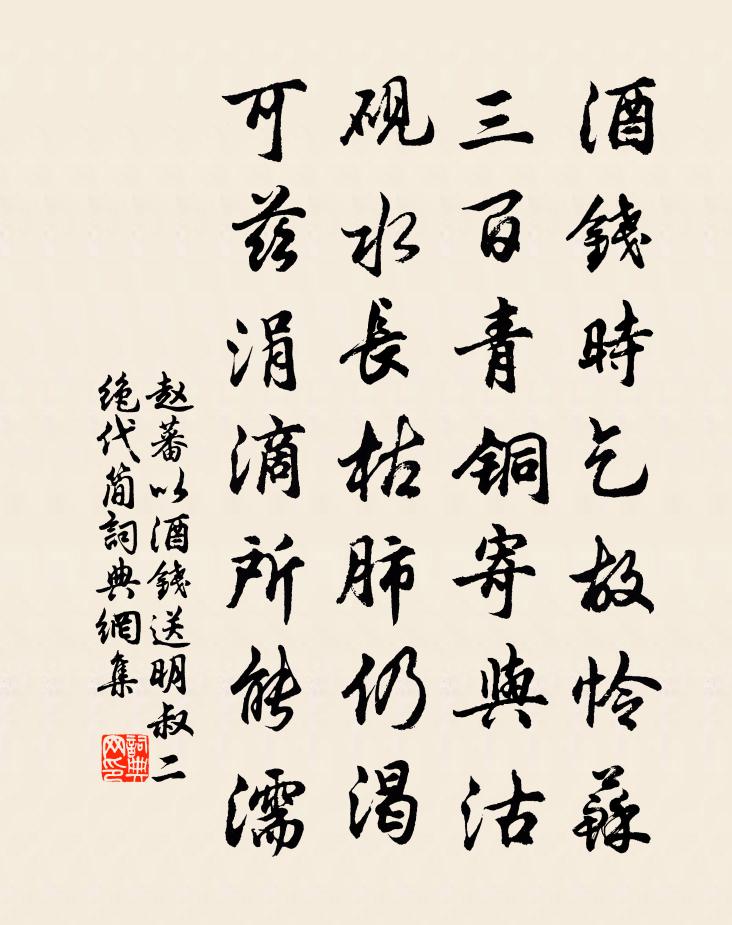 酒錢時乞故怜蘇
三百青銅寄與沽
硯水長枯肺仍渴
可茲涓滴所能濡
赵蕃以酒錢送明叔二
絶代簡詞典網集
詞典网印